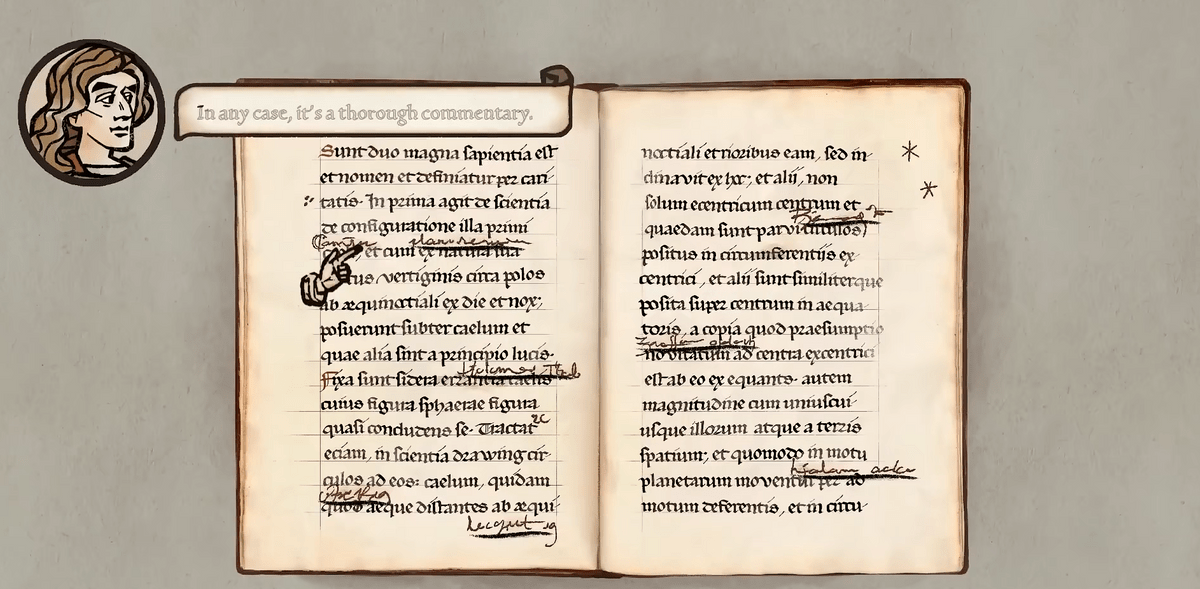 In any case, it's a thorough commentary.
Sunt duo magna sapientia est
et nomen et definiatur per cari-
tatis. In prima agit de scientia
de configuratione illa primi
et cum ex natura sua
tus, vertiginis circa polos
ab æquinoctiali ex die et nox;
posuerunt subter caelum et
quae alia sint a principio lucis.
Fixa sunt sidera errantia caelis
cuius figura sphaerae figura
quasi concludens se. Tractat
eciam, in scientia drawing cir-
culos ad eos: caelum, quidam
quod aeque distantes ab æqui-
noctiali et rioribus eam, sed in-
dinavit ex hoc; et alii, non
solum ecentricum centrum et
quaedam sunt parvi
positus in circumferentiis ex-
centrici, et alii sunt similiterque
posita super centrum in aequa-
toris, a copia quod praesumptio
novitatum ad centra excentrici
est ab eo ex equants. autem
magnitudine cum uniuscui-
usque illorum atque a terris
spatium; et quomodo in motu
planetarum moventur per ad
motum deferentis, et in circu-